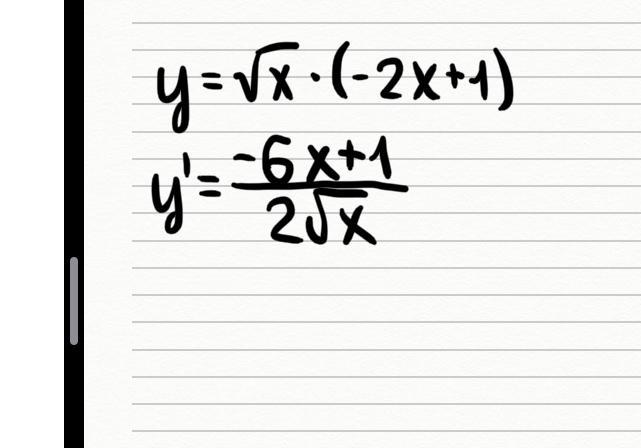 y = √x · (-2x+1)
y' = (-6x+1)/(2√x)